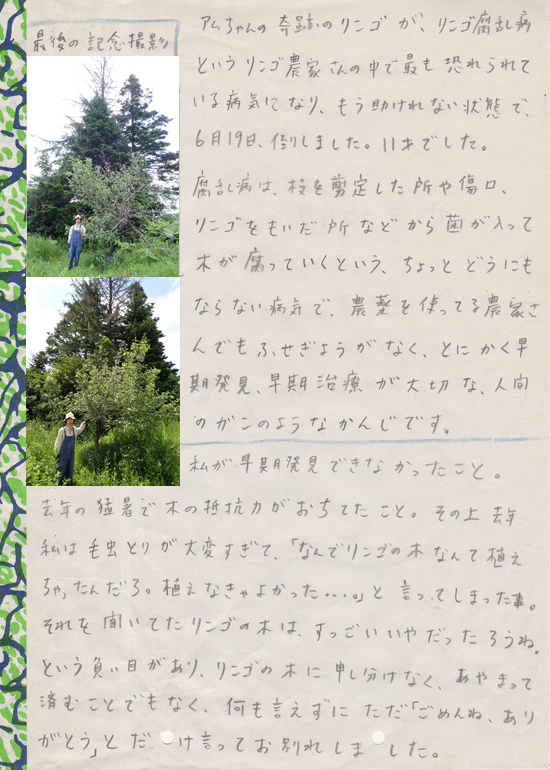 最後の記念撮影
アムちゃんの奇跡のリンゴが、リンゴ腐乱病
というリンゴ農家さんの中で最も恐れられて
いる病気になり、もう助けれない状態で、
6月19日、倒しました。11才でした。
腐乱病は、枝を剪定した所や傷口、
リンゴをもいだ所などから菌が入って
木が腐っていくという、ちょっとどうにも
ならない病気で、農薬を使ってる農家さ
んでもふせぎようがなく、とにかく早
期発見、早期治療が大切な、人間
のがんのようなかんじです。
私が早期発見できなかったこと。
去年の猛暑で木の抵抗力がおちてたこと。その上去年
私は毛虫とりが大変すぎて、「なんでリンゴの木なんて植え
ちゃったんだろ。植えなきゃよかった....。」と言ってしまった事。
それを聞いてたリンゴの木は、すっごいいやだったろうね。
という負い目があり、リンゴの木に申し分けなく、あやまって
済むことでもなく、何も言えずにただ「ごめんね、あり
がとう」とだけ言ってお別れしました。